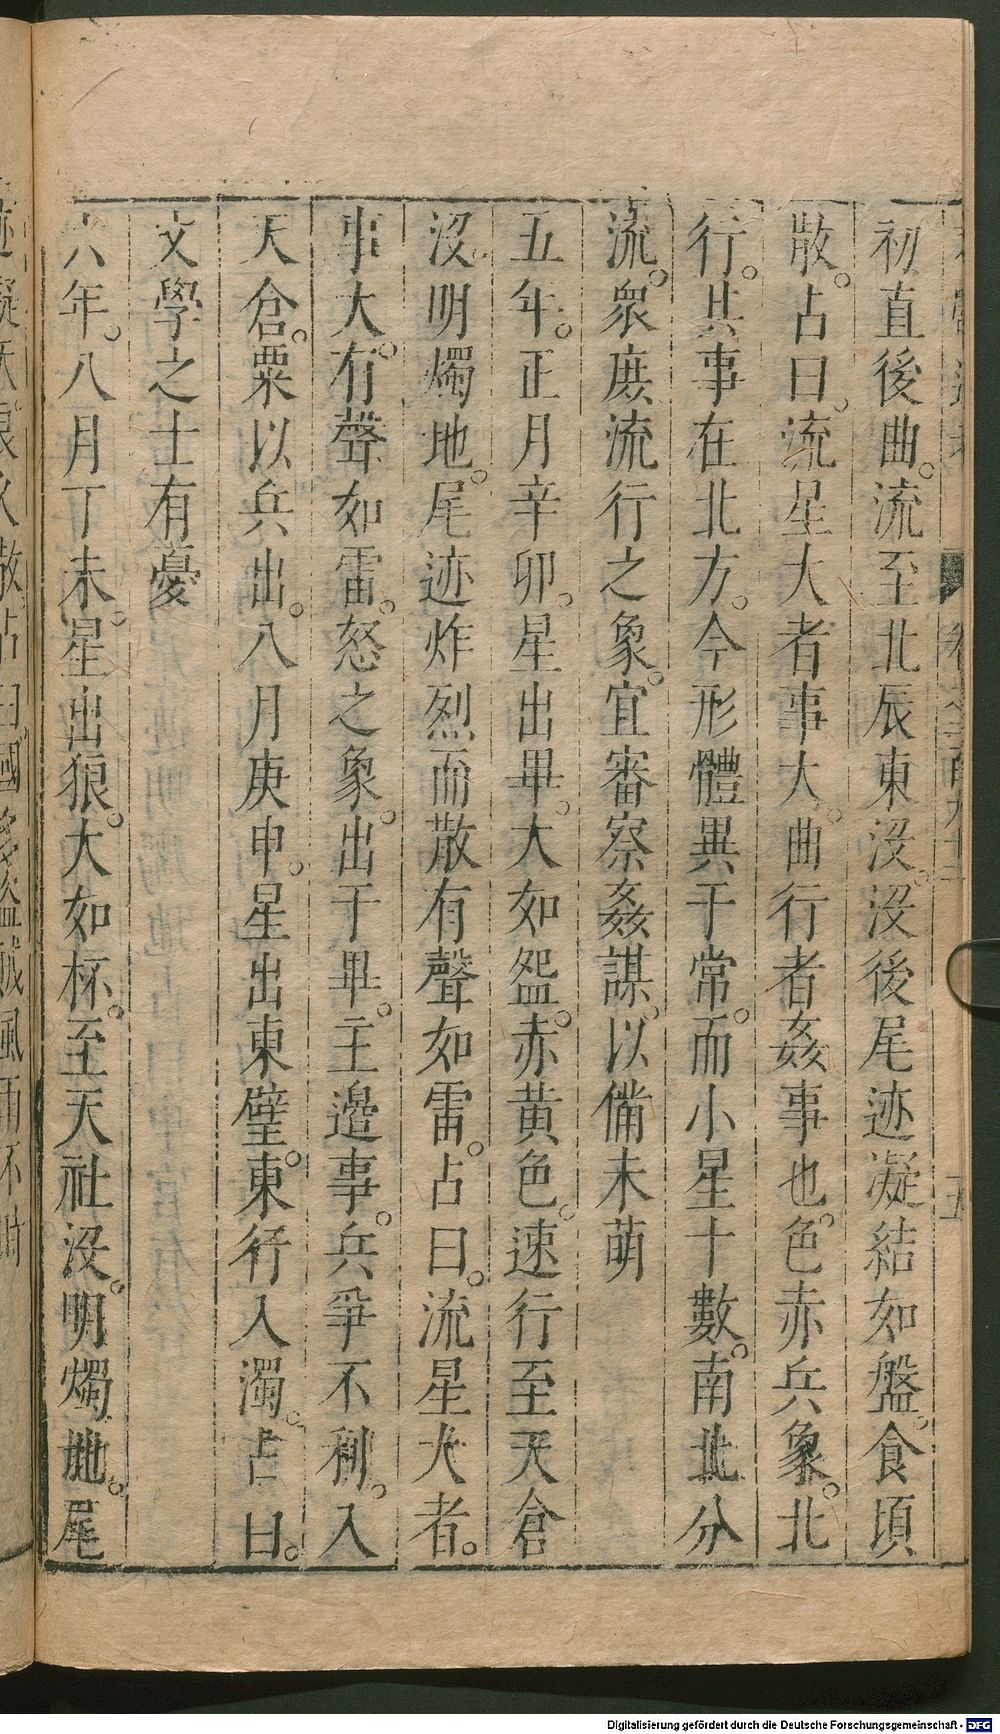 初直後曲。流至北辰東沒。沒後尾迹凝結如盤。食頃
散。占曰。流星大者事大。曲行者姦事也。色赤兵象。北
行。其事在北方。今形體異于常。而小星十數。南北分
流。衆庶流行之象。宜審察姦謀。以備未萌
五年。正月辛卯。星出畢。大如盌。赤黃色。速行至天倉
沒。明燭地。尾迹炸烈而散有聲如雷。占曰。流星大者。
事大。有聲如雷。怒之象。出于畢。主邊事。兵爭不利。入
天倉。粟以兵出。八月庚申。星出東壁。東行入濁。占曰。
文學之士有憂
六年。八月丁未。星出狼。大如杯。至天社沒。明燭地。尾
Digitalisierung gefördert durch die Deutsche Forschungsgemeinschaft - DFG